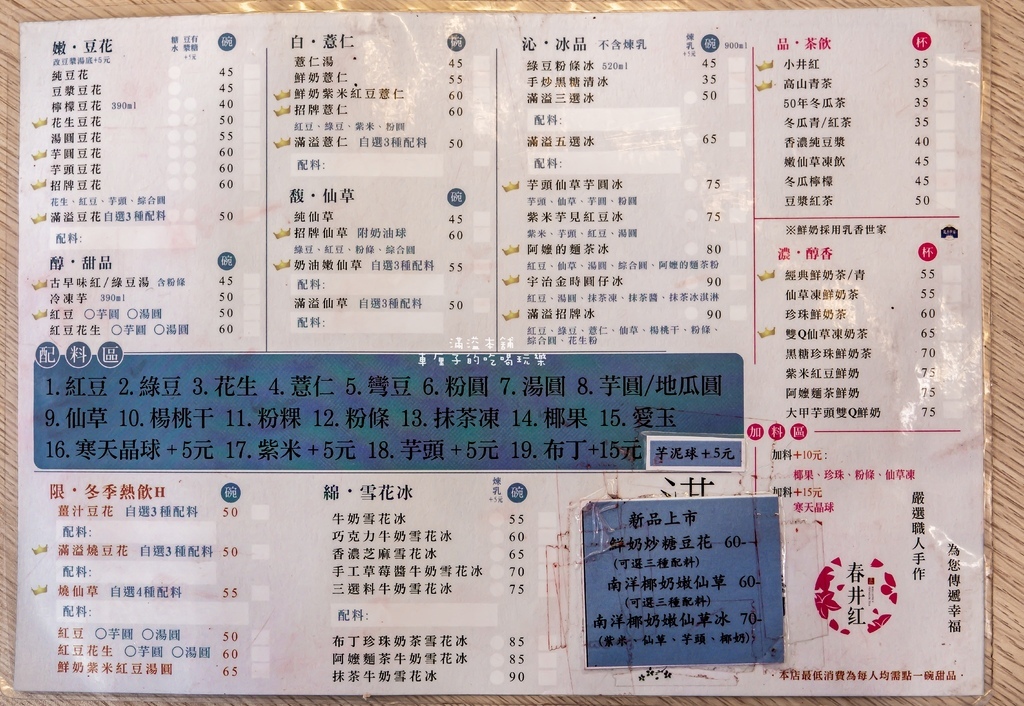 嫩·豆花 糖水 豆有漿糖+5元 碗
改豆漿湯底+5元
純豆花 45
豆漿豆花 45
檸檬豆花 390ml 40
花生豆花 50
湯圓豆花 55
芋圓豆花 60
芋頭豆花 60
招牌豆花 60
花生、紅豆、芋頭、綜合圓
滿溢豆花 自選3種配料 50
配料:
醇·甜品 碗
古早味紅/綠豆湯 含粉條 45
冷凍芋 390ml 50
紅豆 〇芋圓 〇湯圓 50
紅豆花生 〇芋圓 〇湯圓 60
白·薏仁 碗
薏仁湯 45
鮮奶薏仁 55
鮮奶紫米紅豆薏仁 60
招牌薏仁 60
紅豆、綠豆、紫米、粉圓
滿溢薏仁 自選3種配料 50
配料:
馥·仙草 碗
純仙草 45
招牌仙草 附奶油球 60
綠豆、紅豆、粉條、綜合圓
奶油嫩仙草 自選3種配料 55
配料:
滿溢仙草 自選3種配料 50
配料:
沁·冰品 不含煉乳 煉乳+5元 碗 900ml
綠豆粉條冰 520ml 45
手炒黑糖清冰 35
滿溢三選冰 50
配料:
滿溢五選冰 65
配料:
芋頭仙草芋圓冰 75
芋頭、仙草、芋圓、粉圓
紫米芋見紅豆冰 75
紫米、芋頭、紅豆、湯圓
阿嬤的麵茶冰 80
紅豆、仙草、湯圓、綜合圓、阿嬤的麵茶粉
宇治金時圓仔冰 90
紅豆、湯圓、抹茶凍、抹茶醬、抹茶冰淇淋
滿溢招牌冰 90
紅豆、綠豆、薏仁、仙草、楊桃干、粉條、
綜合圓、花生粉
品·茶飲 杯
小井紅 35
高山青茶 35
50年冬瓜茶 35
冬瓜青/紅茶 35
香濃純豆漿 40
嫩仙草凍飲 45
冬瓜檸檬 45
豆漿紅茶 50
※鮮奶採用乳香世家
濃·醇香 杯
經典鮮奶茶/青 55
仙草凍鮮奶茶 55
珍珠鮮奶茶 60
雙Q仙草凍奶茶 65
黑糖珍珠鮮奶茶 70
紫米紅豆鮮奶 75
阿嬤麵茶鮮奶 75
大甲芋頭雙Q鮮奶 75
加料區
加料+10元:
椰果、珍珠、粉條、仙草凍
加料+15元
寒天晶球
滿溢本舖
車厘子的吃喝玩樂
配料區
1.紅豆 2.綠豆 3.花生 4.薏仁 5.彎豆 6.粉圓 7.湯圓 8.芋圓/地瓜圓
9.仙草 10.楊桃干 11.粉粿 12.粉條 13.抹茶凍 14.椰果 15.愛玉
16.寒天晶球+5元 17.紫米+5元 18.芋頭+5元 19.布丁+15元 芋泥球+5元
限·冬季熱飲H 碗
薑汁豆花 自選3種配料 50
配料:
滿溢燒豆花 自選3種配料 50
配料:
燒仙草 自選4種配料 55
配料:
紅豆 〇芋圓 〇湯圓 50
紅豆花生 〇芋圓 〇湯圓 60
鮮奶紫米紅豆湯圓 65
綿·雪花冰 煉乳+5元 碗
牛奶雪花冰 55
巧克力牛奶雪花冰 60
香濃芝麻雪花冰 65
手工草莓醬牛奶雪花冰 70
三選料牛奶雪花冰 75
配料:
布丁珍珠奶茶雪花冰 85
阿嬤麵茶牛奶雪花冰 85
抹茶牛奶雪花冰 90
新品上市
鮮奶炒糖豆花 60-
(可選三種配料)
南洋椰奶嫩仙草 60-
(可選三種配料)
南洋椰奶嫩仙草冰 70-
(紫米、仙草、芋頭、椰奶)
嚴選職人手作
為您傳遞幸福
春井紅
·本店最低消費為每人均需點一碗甜品·